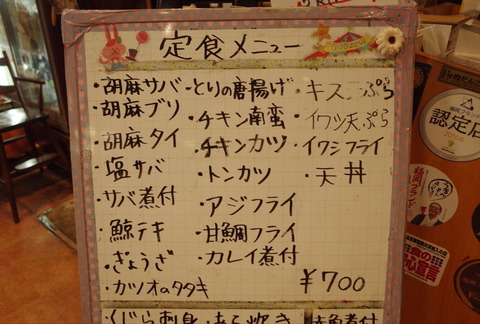 定食メニュー
・胡麻サバ
・胡麻ブリ
・胡麻タイ
・塩サバ
・サバ煮付
・鯨テキ
・ぎょうざ
・カツオのタタキ
・とりの唐揚げ
・チキン南蛮
・チキンカツ
・トンカツ
・アジフライ
・甘鯛フライ
・カレイ煮付
・キス天ぷら
・イワシ天ぷら
・イワシフライ
・天丼
¥700
・くじら刺身・あら炊き
認定店